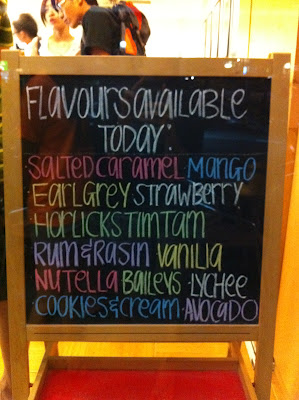 FLAVOURS AVAILABLE
TODAY:
SALTED CARAMEL MANGO
EARL GREY STRAWBERRY
HORLICKS TIMTAM
RUM & RASIN VANILIA
NUTELLA BAILEYS · LYCHEE
· COOKIES & CREAM · AVOCADO